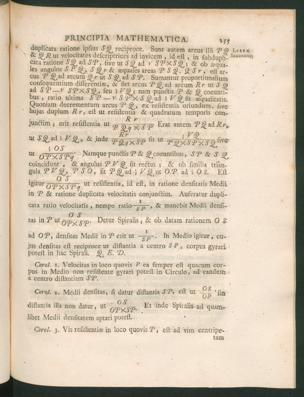 PRINCIPIA MATHEMATICA. 285
duplicata ratione ipsius SQ reciproce. Sunt autem areus illi PQ
& QR ut velocitates descriptrices ad invicem, id est, in subdupli-
cata ratione SQ ad SP, sive ut SQ ad √SP×SQ; & ob æqua-
les angulos SPQ, SQr & æquales areas PSQ, QSr, est ar-
cus PQ ad arcum Qr ut SQ ad SP. Sumantur proportionalium
consequentium differentiæ, & fiet arcus PQ ad arcum Rr ut SQ
ad SP−√SP×SQ, seu ½VQ; nam punctis P & Q coeunti-
bus, ratio ultima SP−√SP×SQ ad ½VQ fit æqualitatis.
Quoniam decrementum arcus PQ, ex resistentia oriundum, sive
hujus duplum Rr, est ut resistentia & quadratum temporis con-
junctim; erit resistentia ut Rr / PQq×SP. Erat autem PQ ad Rr,
ut SQ ad ½VQ, & inde Rr / PQq×SP fit ut ½VQ / PQ×SP×SQ sive
ut ½OS / OP×SPq. Namque punctis P & Q coeuntibus, SP & SQ
coincidunt, & angulus PVQ fit rectus; & ob similia trian-
gula PVQ, PSO, fit PQ ad ½VQ ut OP ad ½OS. Est
igitur OS / OP×SPq ut resistentia, id est, in ratione densitatis Medii
in P & ratione duplicata velocitatis conjunctim. Auferatur dupli-
cata ratio velocitatis, nempe ratio 1/SP, & manebit Medii densi-
tas in P ut OS / OP×SP. Detur Spiralis, & ob datam rationem OS
ad OP, densitas Medii in P erit ut 1/SP. In Medio igitur, cu-
jus densitas est reciproce ut distantia a centro SP, corpus gyrari
potest in hac Spirali. Q. E. D.
Corol. 1. Velocitas in loco quovis P ea semper est quacum cor-
pus in Medio non resistente gyrari potest in Circulo, ad eandem
a centro distantiam SP.
Corol. 2. Medii densitas, si datur distantia SP, est ut OS/OP, sin
distantia illa non datur, ut OS / OP×SP. Et inde Spiralis ad quam-
libet Medii densitatem aptari potest.
Corol. 3. Vis resistentiæ in loco quovis P, est ad vim centripe-
tam